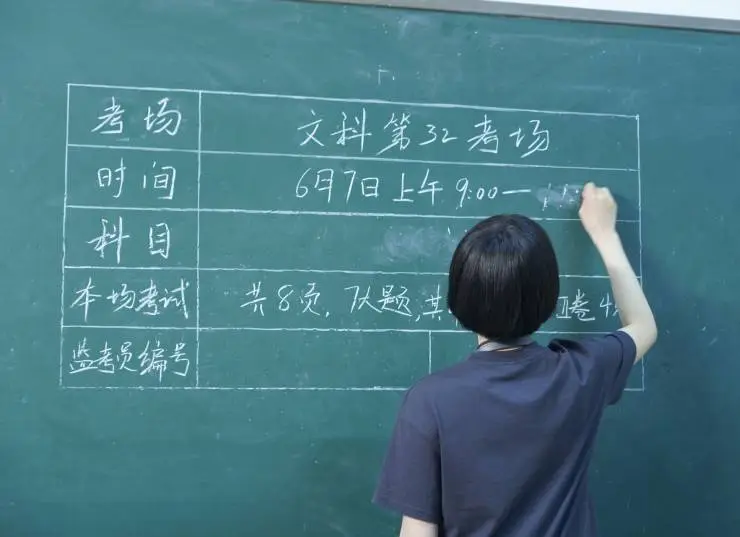 考场 文科第32考场
时间 6月7日上午 9:00—
科目
本场考试 共8页,7大题,共 Ⅱ卷4
监考员编号